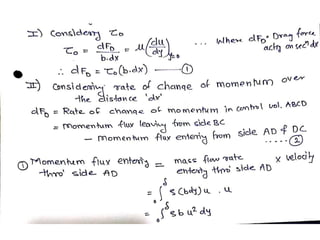 I) Considering τo
τo = dFD / b.dx = μ (du/dy)y=0 ... Where dFD = Drag force acting on secⁿ dx
∴ dFD = τo (b.dx) — ①
II) Considering rate of change of momentum over
the distance 'dx'
dFD = Rate of change of momentum in control vol. ABCD
= momentum flux leaving from side BC
– momentum flux entering from side AD & DC
..... ②
① Momentum flux entering thro' side AD = mass flow rate entering thro' side AD × velocity
= ∫₀^δ ρ (bdy) u . u
= ∫₀^δ ρ b u² dy